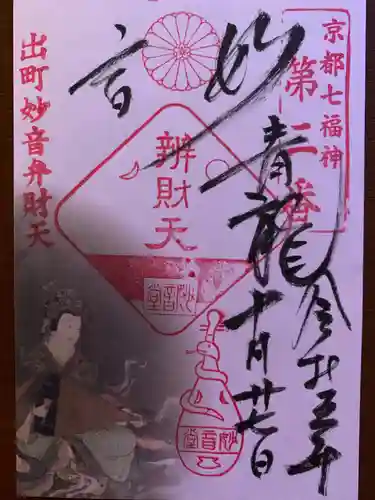 京都七福神
第二番
妙音
青龍
令和五年
十月廿七日
辨財天
妙音堂
妙音堂
出町妙音弁財天